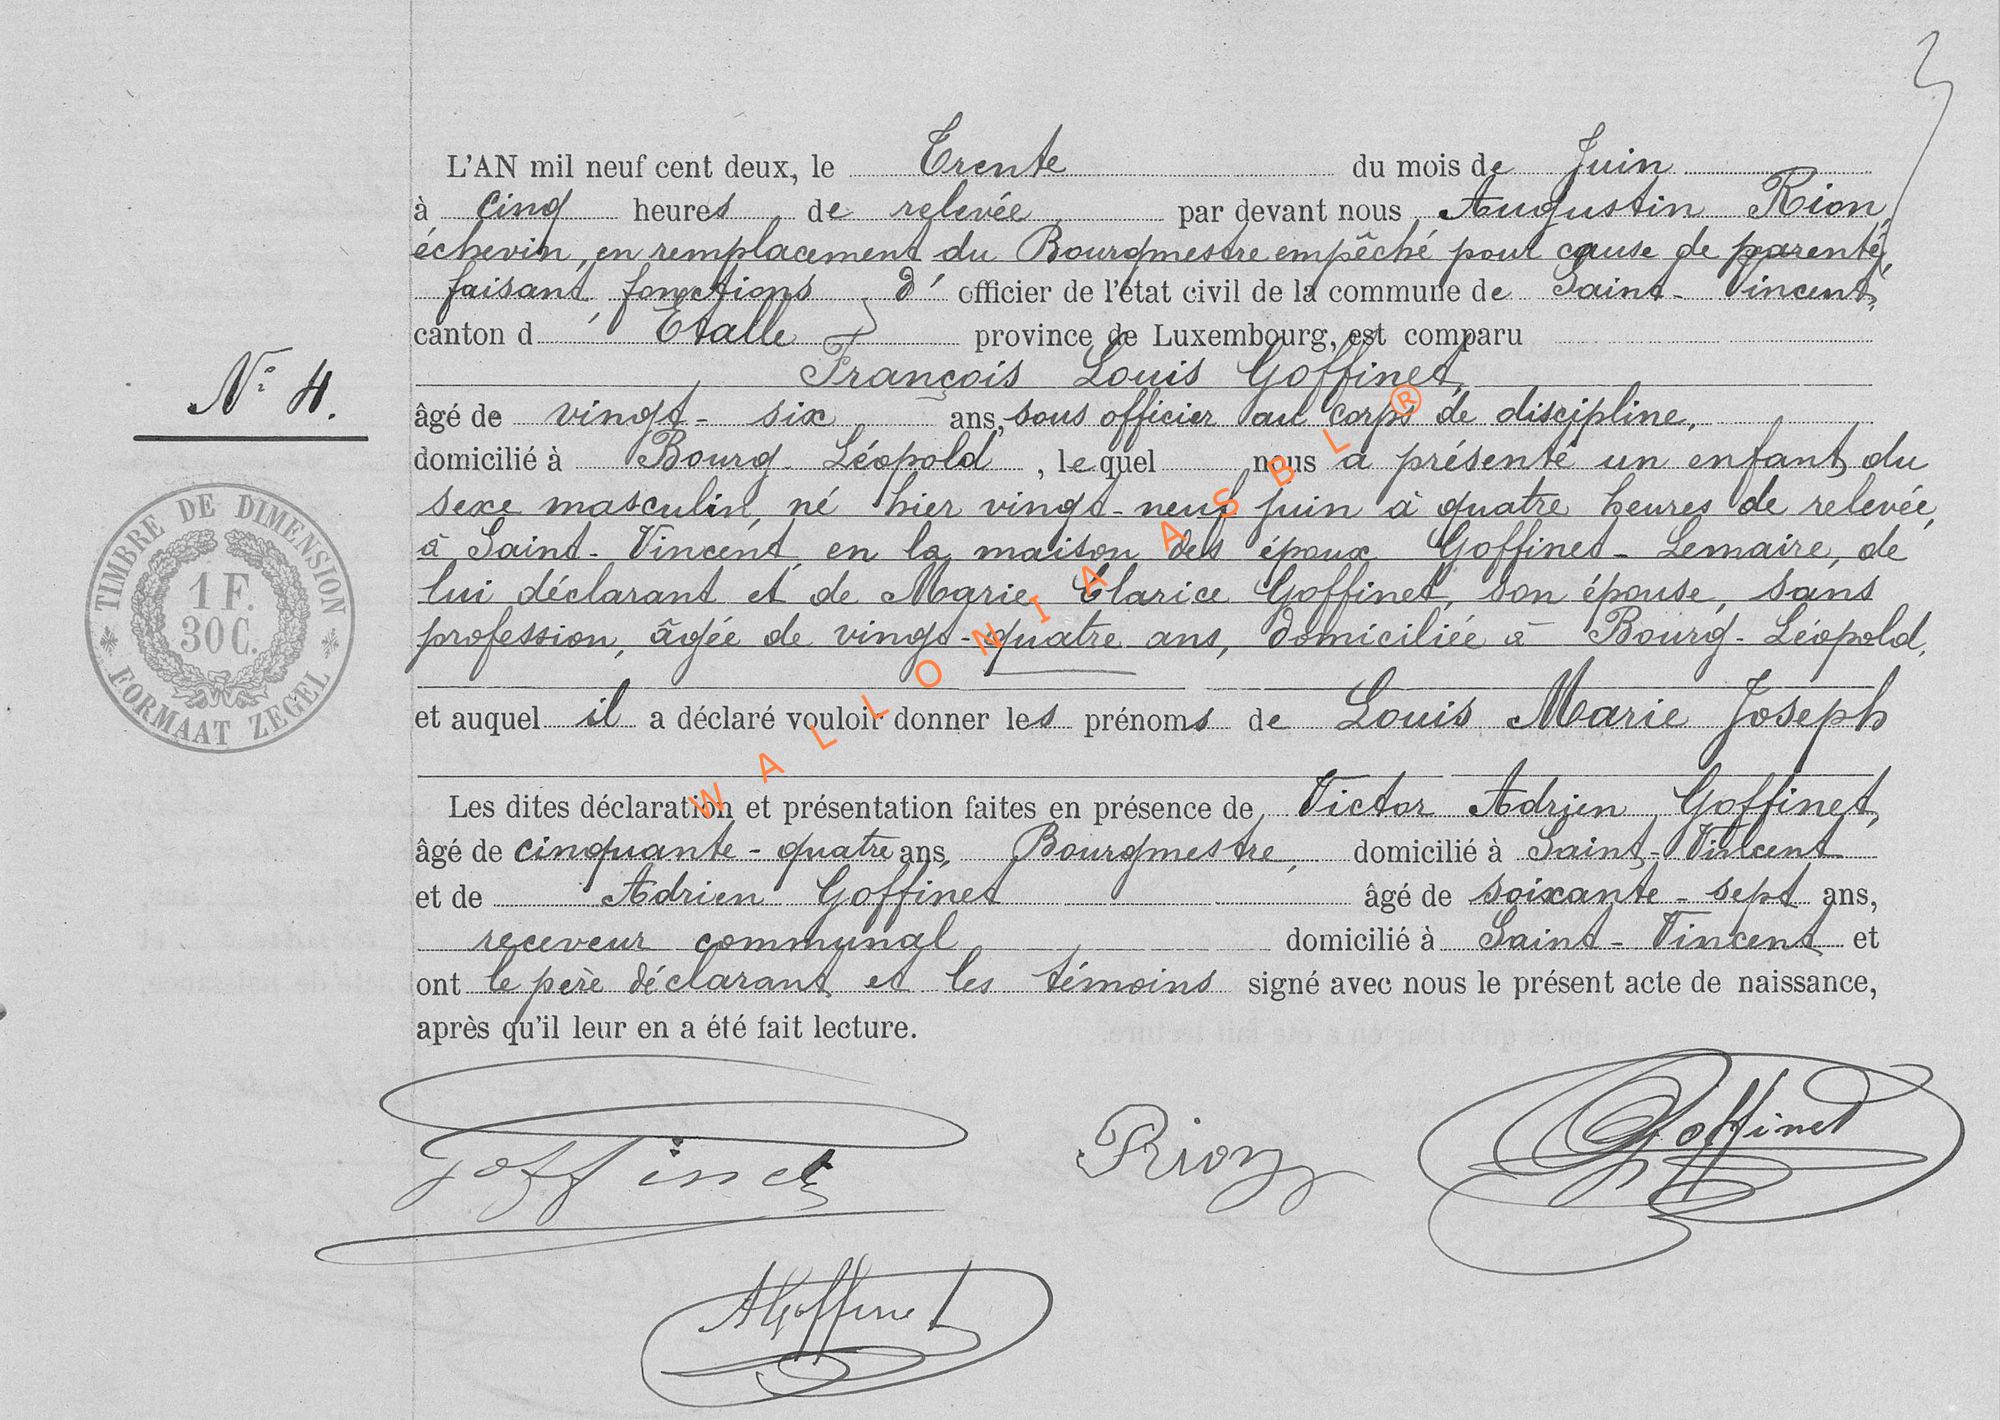 L'AN mil neuf cent deux, le Trente du mois de Juin
à cinq heures de relevée par devant nous Augustin Rion,
échevin, en remplacement du Bourgmestre empêché pour cause de parenté,
faisant fonctions d' officier de l'état civil de la commune de Saint-Vincent,
canton d'Etalle province de Luxembourg, est comparu
François Louis Goffinet,
N° 4.
âgé de vingt-six ans, sous officier au corps de discipline,
domicilié à Bourg-Léopold, lequel nous a présenté un enfant du
sexe masculin, né hier vingt-neuf juin à quatre heures de relevée,
à Saint-Vincent, en la maison des époux Goffinet-Lemaire, de
lui déclarant et de Marie Clarice Goffinet, son épouse, sans
profession, âgée de vingt-quatre ans, domiciliée à Bourg-Léopold,
et auquel il a déclaré vouloir donner les prénoms de Louis Marie Joseph
Les dites déclaration et présentation faites en présence de Victor Adrien Goffinet,
âgé de cinquante-quatre ans, Bourgmestre, domicilié à Saint-Vincent
et de Adrien Goffinet âgé de soixante-sept ans,
receveur communal domicilié à Saint-Vincent et
ont le père déclarant et les témoins signé avec nous le présent acte de naissance,
après qu'il leur en a été fait lecture.
Goffinet Rion Goffinet
AGoffinet
TIMBRE DE DIMENSION
1 F.
30 C.
FORMAAT ZEGEL
WALLONIA ASBL ®